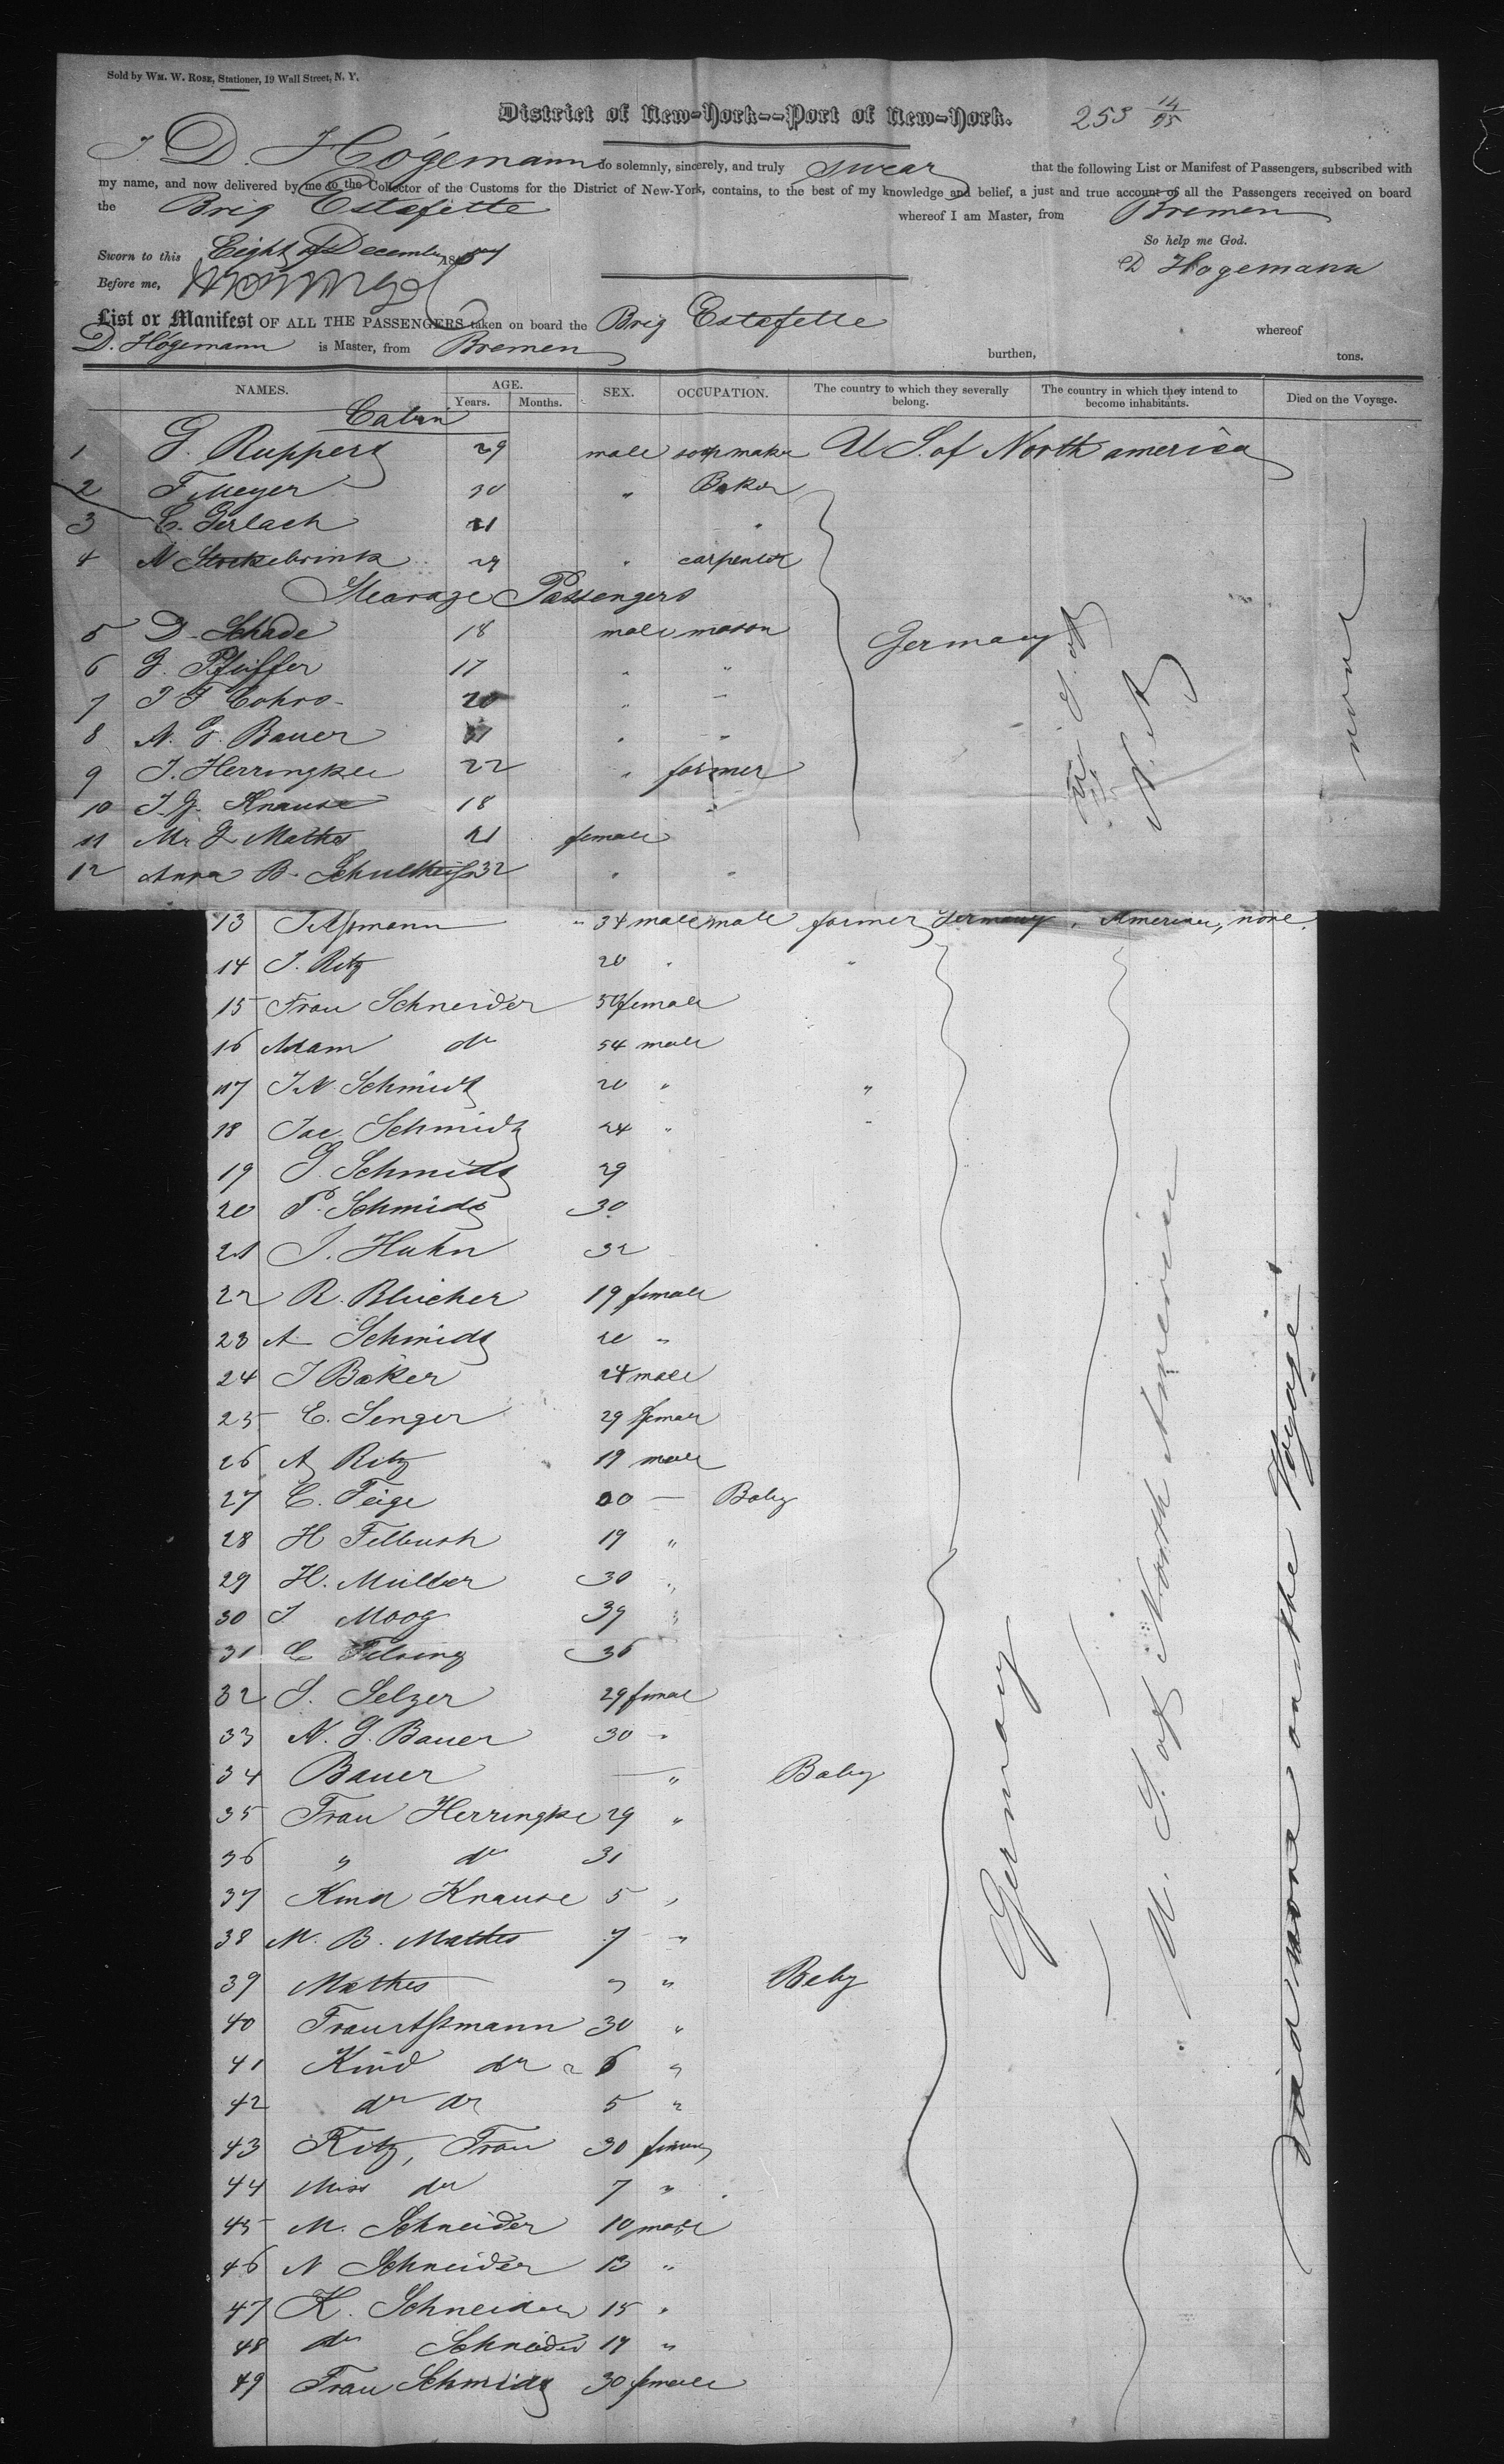 Sold by Wm. W. Rose, Stationer, 19 Wall Street, N. Y.
District of New-York--Port of New-York.
253 14/95
I. D. Högemann do solemnly, sincerely, and truly swear that the following List or Manifest of Passengers, subscribed with
my name, and now delivered by me to the Collector of the Customs for the District of New-York, contains, to the best of my knowledge and belief, a just and true account of all the Passengers received on board
the Brig Estafette whereof I am Master, from Bremen
So help me God.
Sworn to this Eight of December 18
D Hogemann
Before me,
List or Manifest OF ALL THE PASSENGERS taken on board the Brig Estafette whereof
D. Högemann is Master, from Bremen burthen, tons.
NAMES. AGE. Years. Months. SEX. OCCUPATION. The country to which they severally belong. The country in which they intend to become inhabitants. Died on the Voyage.
Cabin
1 G. Ruppert 29 male soapmaker U S. of North america
2 F. Meyer 30 " Baker
3 C. Gerlach 21 "
4 N Stockebrink 29 " carpenter
Stearage Passengers
5 D. Schade 18 male mason Germany U. S. of N. A none
6 G. Pfeiffer 17 " "
7 J F Cohrs 20 " "
8 N. G. Bauer " "
9 J. Herringkee 22 " farmer
10 J. G. Knause 18 "
11 Mr G Mathes 21 female
12 Anna B. Schultheiss 32 " "
13 J Assmann " 34 male male farmer Germany, American, none.
14 J. Ritz 20 " "
15 Frau Schneider 50 female
16 Adam do 54 male
17 J N. Schmidt 20 " "
18 Jac. Schmidt 24 " "
19 G. Schmidt 29
20 P. Schmidt 30
21 J. Huhn 32
22 R. Blücher 19 female
23 A Schmidt 20 "
24 J Baker 24 male
25 C. Senger 29 femal
26 A Ritz 19 male
27 C. Feige 00 — Baby
28 H Felbush 19 "
29 H. Müller 30 "
30 J Moog 39 "
31 C Felsing 36
32 S. Selzer 29 female
33 N. G. Bauer 30 "
34 Bauer — " Baby
35 Frau Herringke 29 "
36 " do 31
37 Kind Knause 5 "
38 M. B. Mathes 7 "
39 Mathes " " Beby
40 Frau Assmann 30 "
41 Kind do 6 "
42 do do 5 "
43 Ritz, Frau 30 female
44 Miss do 7 "
45 M. Schneider 10 male
46 N Schneider 13 "
47 K. Schneider 15 "
48 do Schneider 19 "
49 Frau Schmidt 30 female
Germany
U. S. of North America
Did none on the Voyage